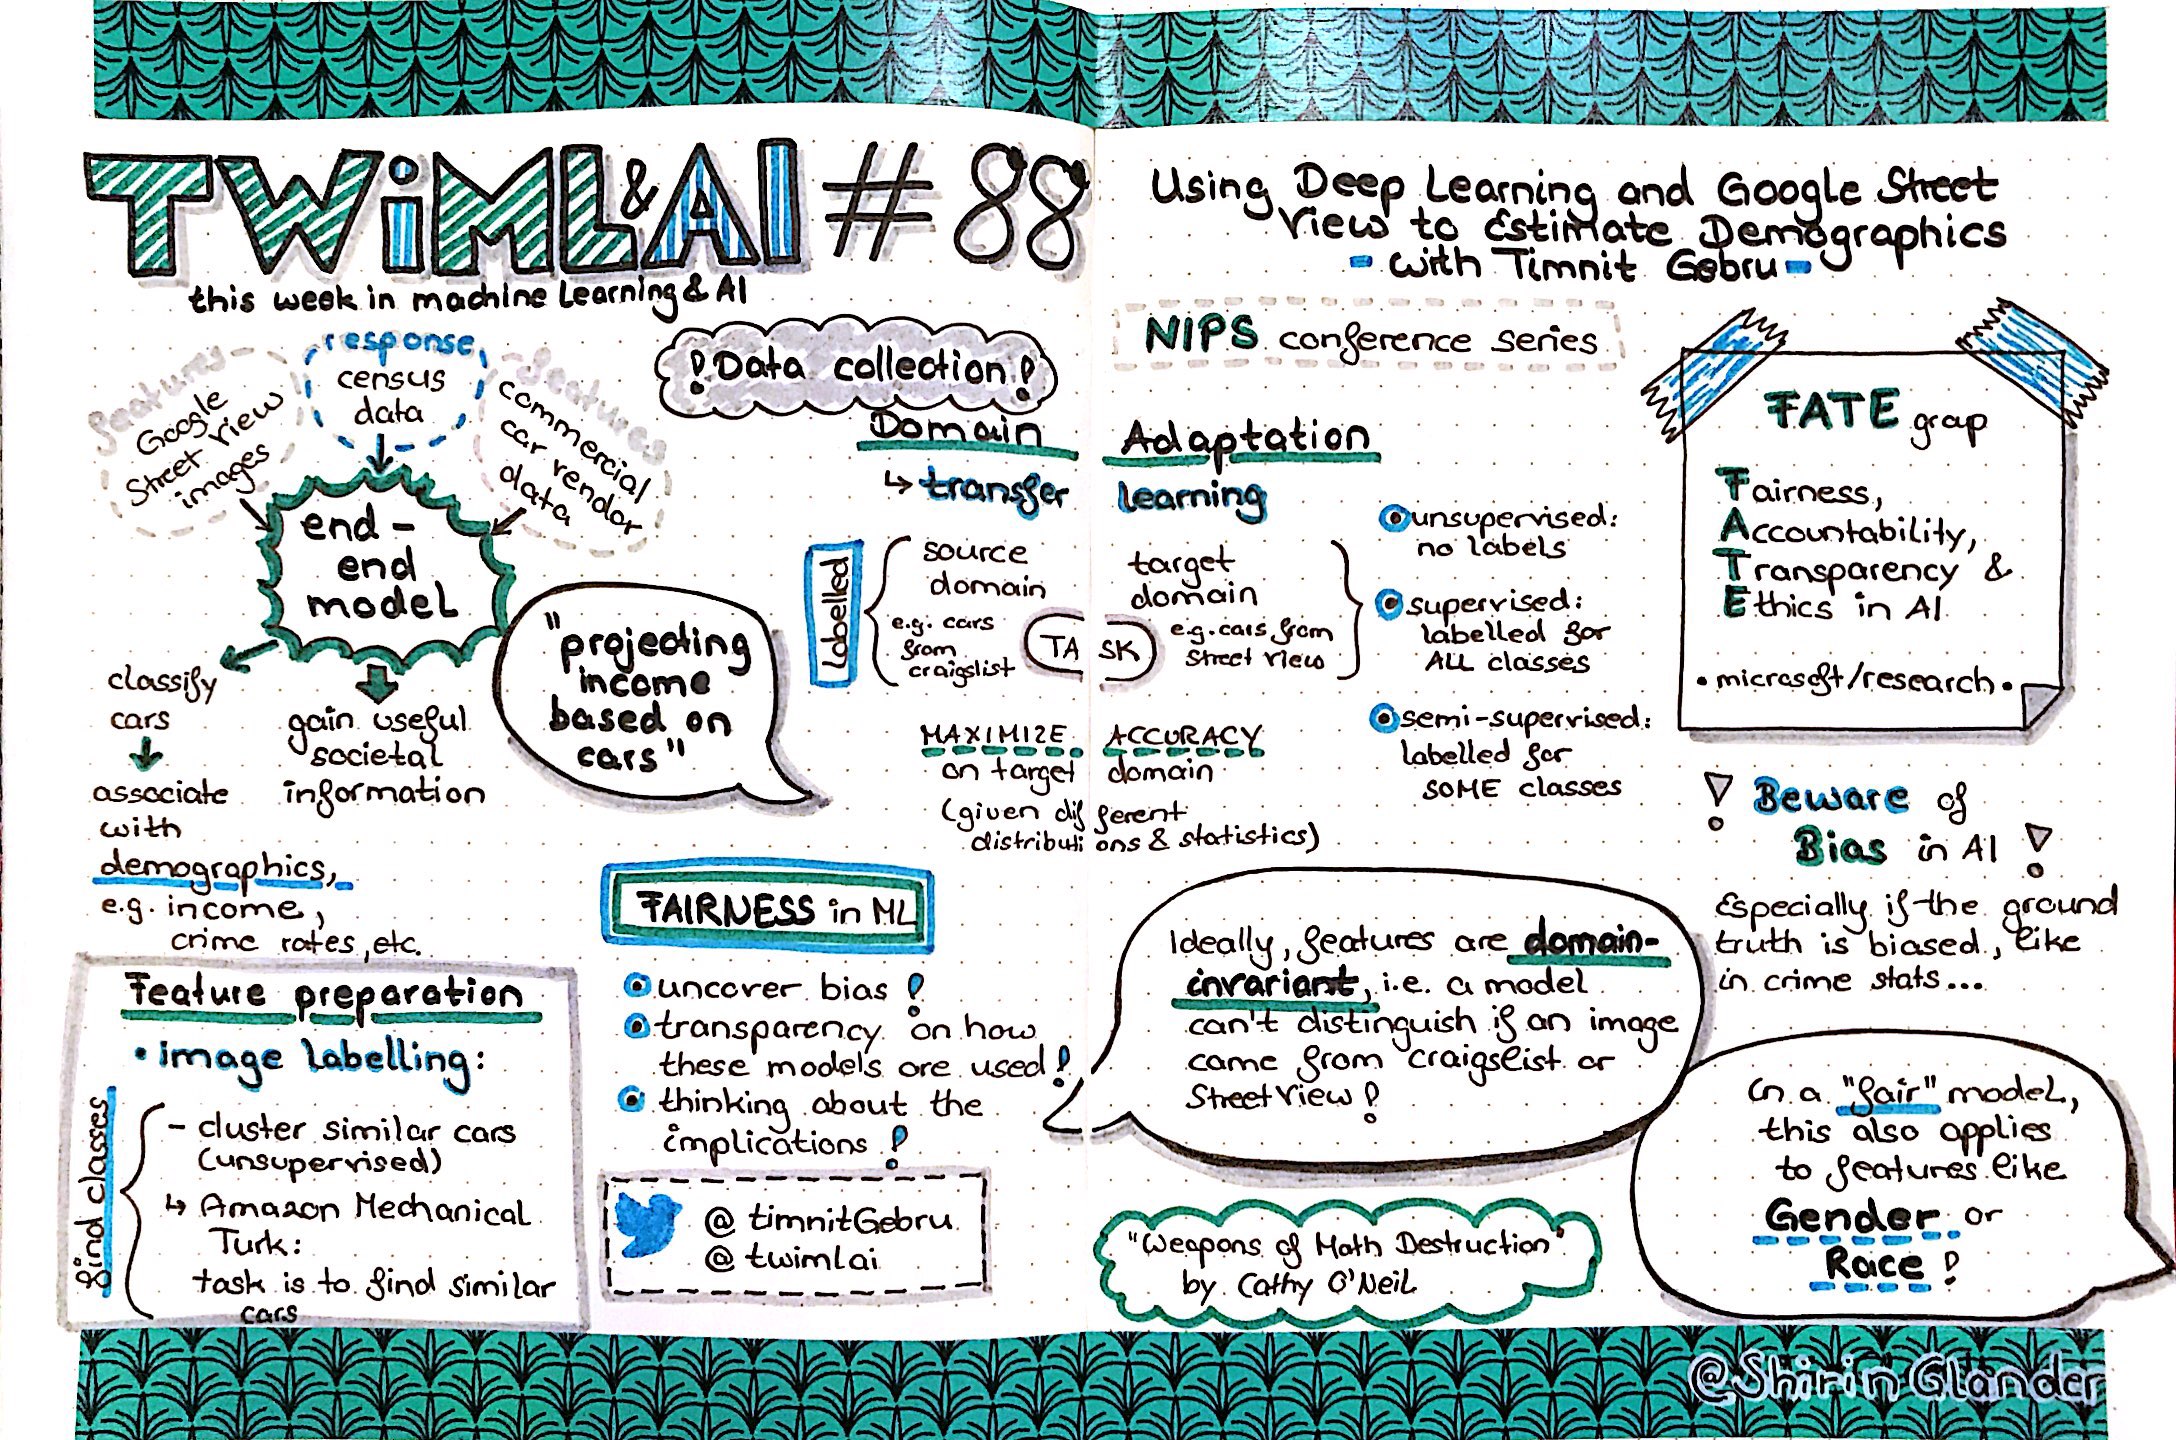 TWiML&AI #88
this week in machine Learning & AI
Using Deep Learning and Google Street
View to Estimate Demographics
- with Timnit Gebru -
NIPS conference series
features
Google
Street View
images
response
census
data
features
commercial
car vendor
data
end-
end
model
classify
cars
associate
with
demographics,
e.g. income,
crime rates, etc.
gain useful
societal
information
"projecting
income
based on
cars"
! Data collection !
Domain Adaptation
↳ transfer learning
Labelled
source
domain
e.g. cars
from
craigslist
TASK
target
domain
e.g. cars from
Street View
unsupervised:
no labels
supervised:
labelled for
ALL classes
semi-supervised:
labelled for
SOME classes
MAXIMIZE ACCURACY
on target domain
(given different
distributions & statistics)
FATE group
Fairness,
Accountability,
Transparency &
Ethics in AI
• microsoft/research •
! Beware of
Bias in AI !
Especially if the ground
truth is biased, like
in crime stats...
Feature preparation
• image labelling:
find classes
- cluster similar cars
(unsupervised)
↳ Amazon Mechanical
Turk:
task is to find similar
cars
FAIRNESS in ML
uncover bias!
transparency on how
these models are used!
thinking about the
implications!
@timnitGebru
@twimlai
Ideally, features are domain-
invariant, i.e. a model
can't distinguish if an image
came from craigslist or
Street View!
In a "fair" model,
this also applies
to features like
Gender or
Race!
"Weapons of Math Destruction"
by Cathy O'Neil
@Shirin Glander